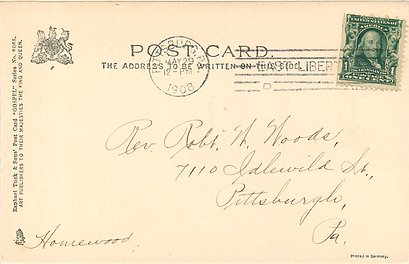 POST CARD.
THE ADDRESS TO BE WRITTEN ON THIS SIDE.
PITTSBURG, PA.
MAY 29
12-PM
1908
LIBERT
Rev Robt. W. Woods,
7110 Idlewild St.,
Pittsburgh,
Pa.
Homewood.
Raphael Tuck & Sons' Post Card
ART PUBLISHERS TO THEIR MAJESTIES THE KING AND QUEEN.
Printed in Germany.